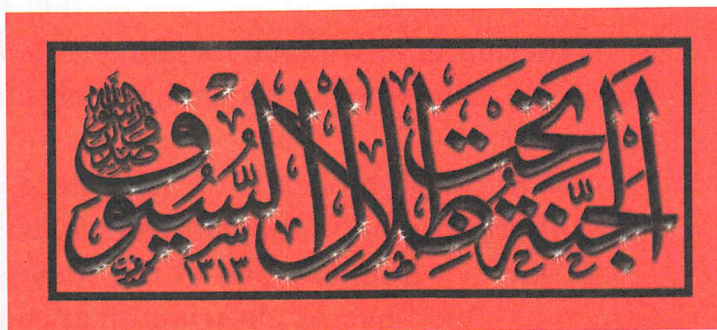 اَلْجَنَّةُ تَحْتَ ظِلَالِ السُّيُوفِ
صدق رسول الله
سنة ١٣١٣